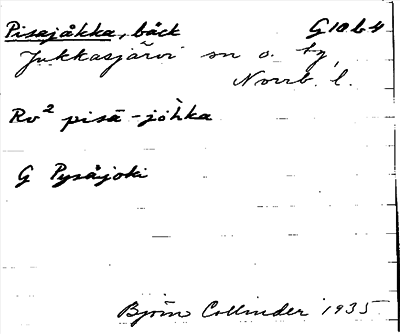 Pisajåkka, bäck G10b4
Jukkasjärvi sn o. tg,
Norrb. l.
Rv² pisā-jòhka
G Pysäjoki
Björn Collinder 1935